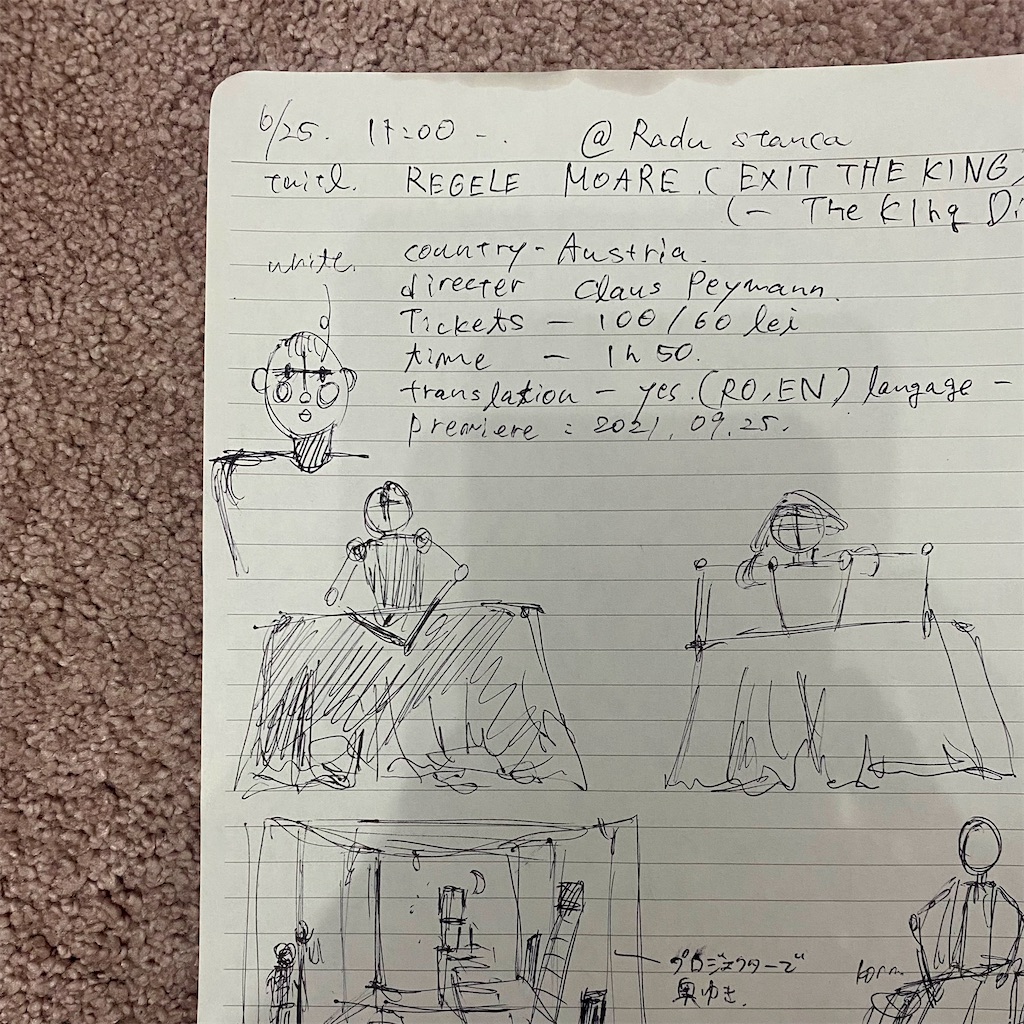 6/25. 17:00 -. @ Radu stanca
REGELE MOARE. (EXIT THE KING)
(- The KIng Di
white.
country - Austria.
directer Claus Peymann.
Tickets - 100/60 lei
time - 1h 50.
translation - yes. (RO, EN) langage -
premiere : 2021. 09. 25.
プロジェクターで
奥ゆき.